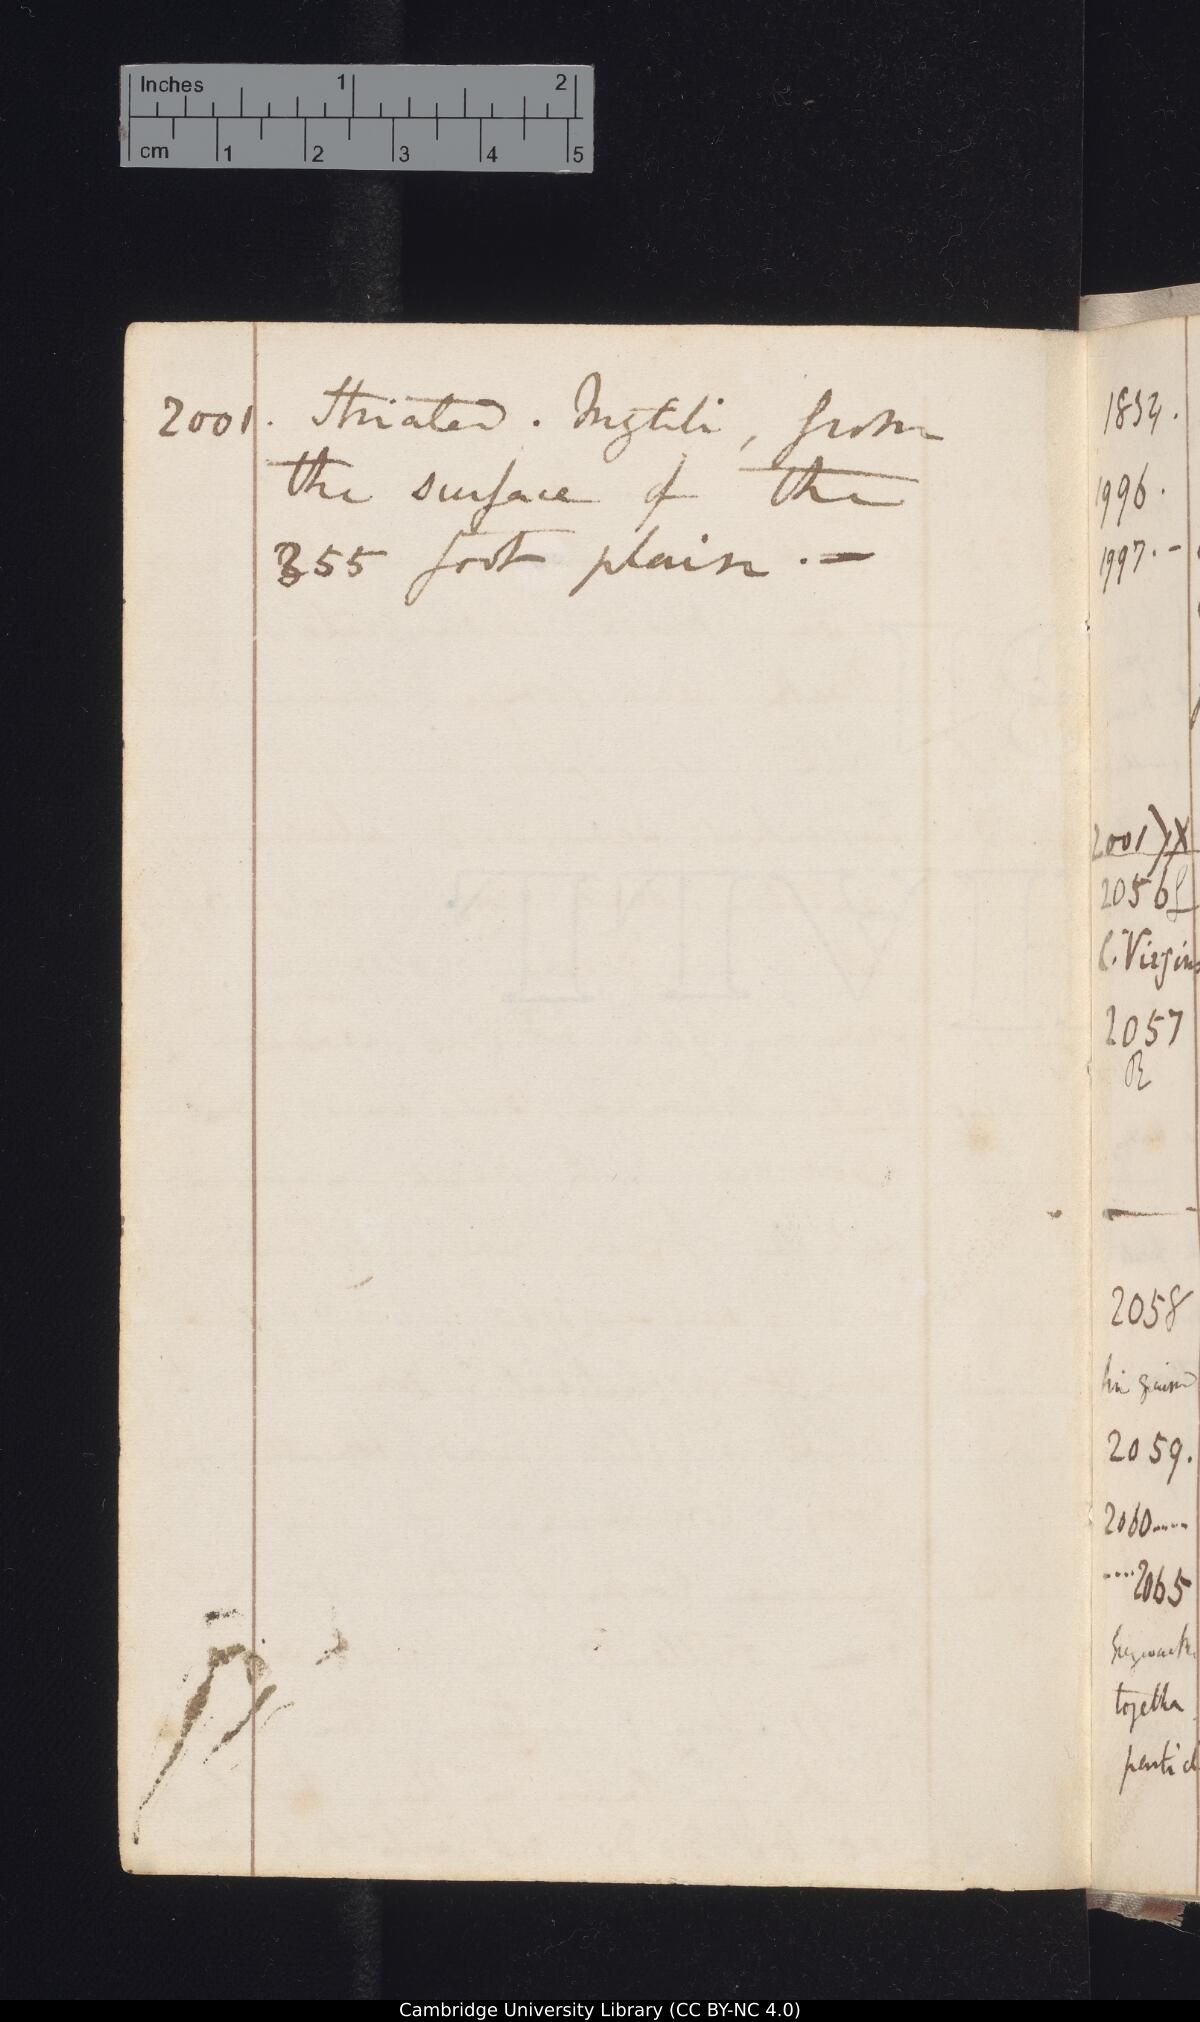 Inches 1 2
cm 1 2 3 4 5
2001. Striated. Mytili, from
the surface of the
355 foot plain. —
1834.
1996.
1997. -
2001) X
2056
C. Virgins
2057
R
2058
2059.
2060....
....2065
together
Cambridge University Library (CC BY-NC 4.0)